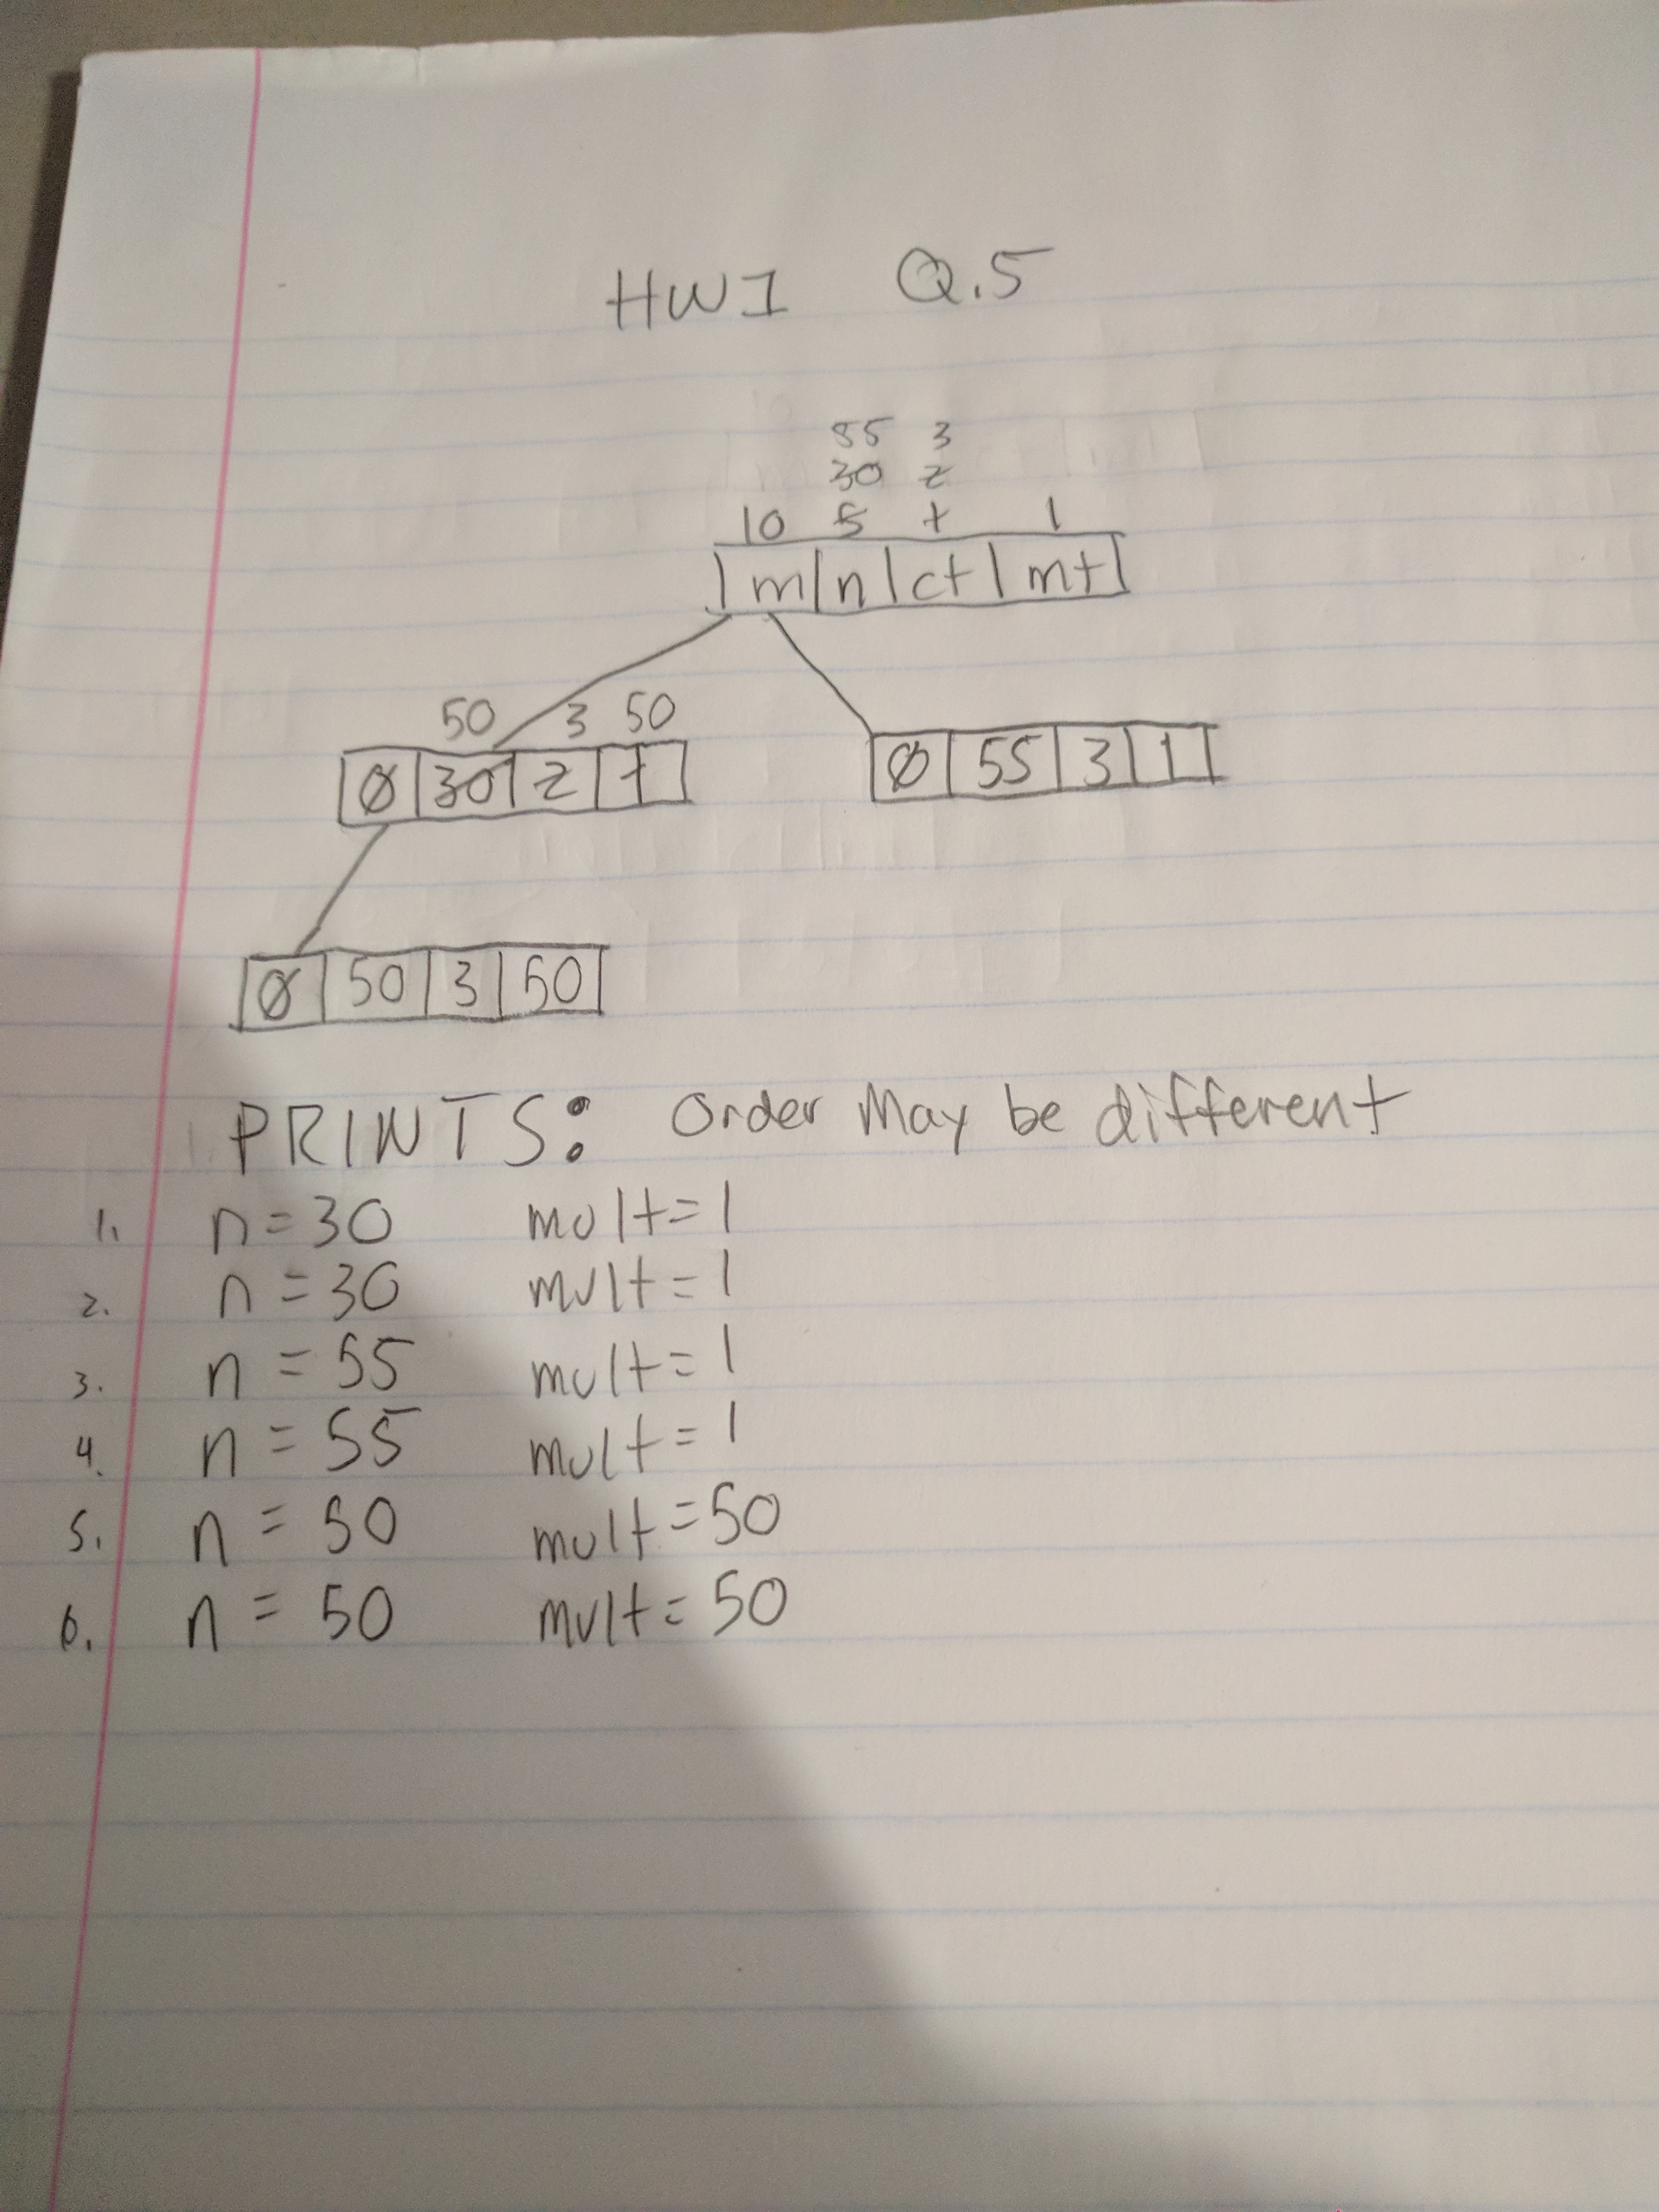 HW1 Q.5
55 3
30 2
10 5 1 1
m n ct mt
50 3 50
Ø 30 2 1
Ø 55 3 1
Ø 50 3 50
PRINTS: Order May be different
1. n=30 mult=1
2. n=30 mult=1
3. n=55 mult=1
4. n=55 mult=1
5. n=50 mult=50
6. n=50 mult=50